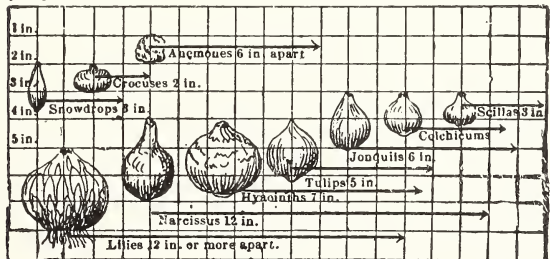 1 in.
2 in.
Anemones 6 in. apart
3 in.
Crocuses 2 in.
Snowdrops 3 in.
4 in.
Scillas 3 in
Colchicums
5 in.
Jonquils 6 in.
Tulips 5 in.
Hyacinths 7 in.
Narcissus 12 in.
Lilies 12 in. or more apart.